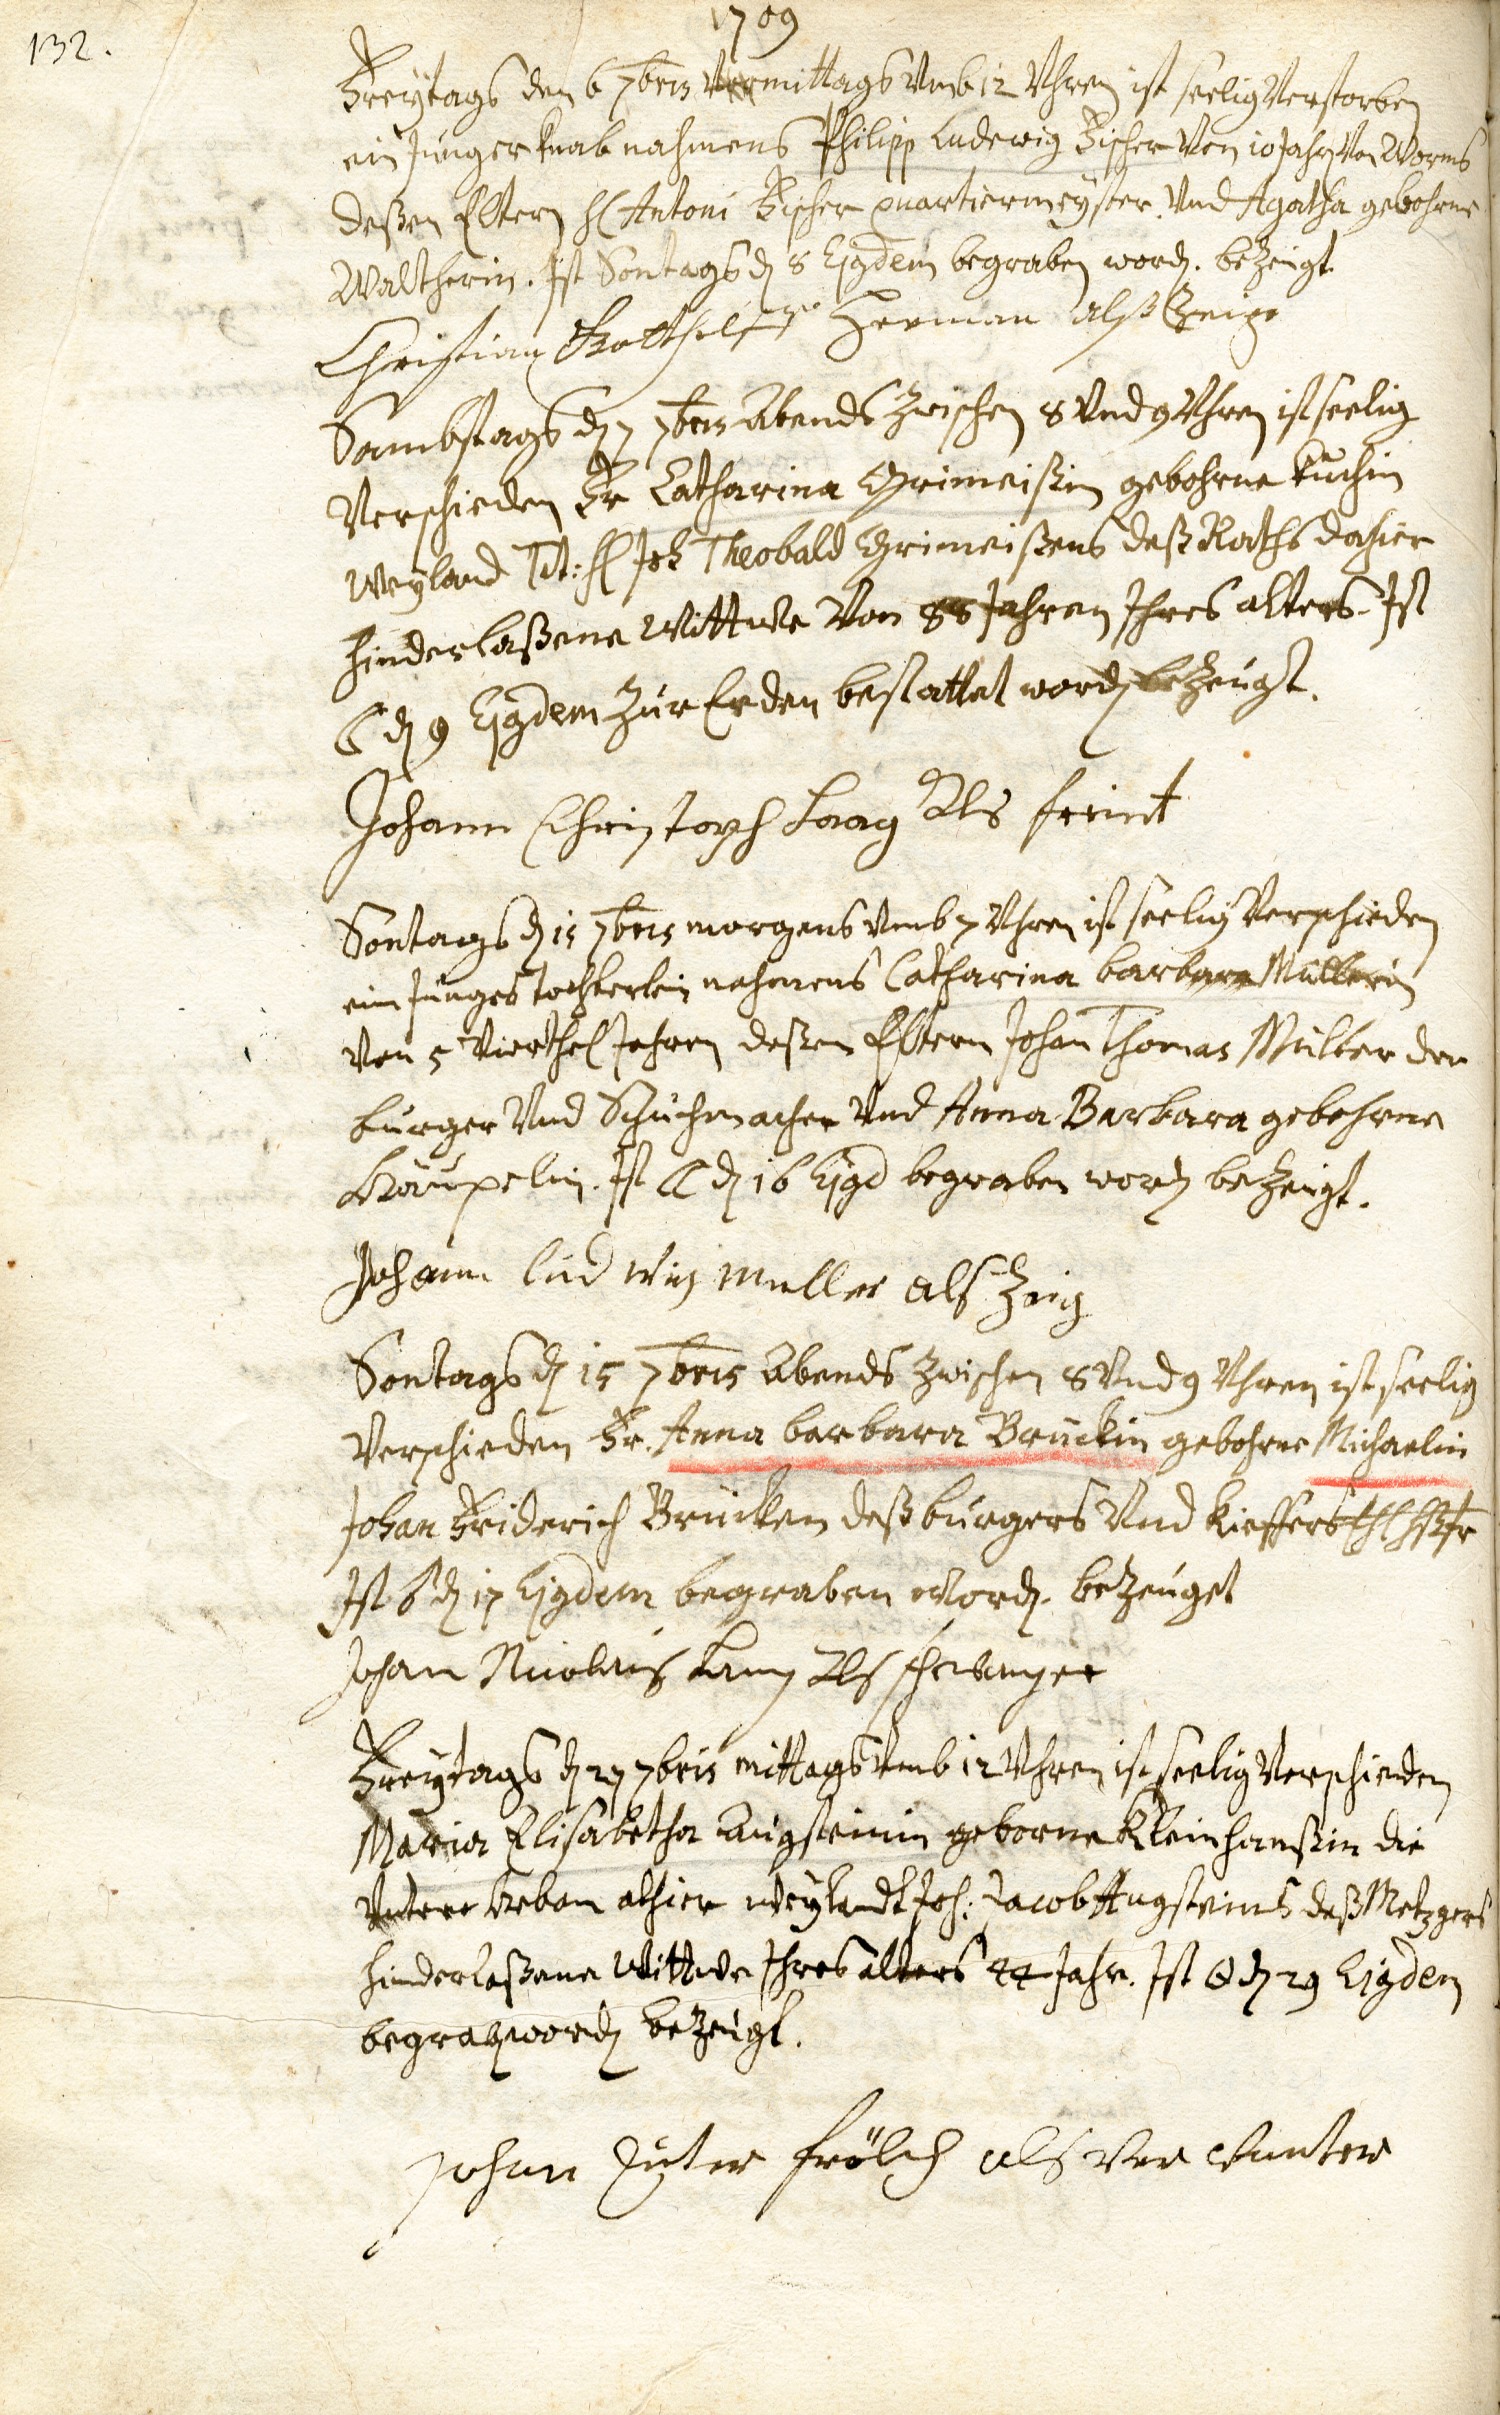 132.
1709
Freytags den 6 7bris mittags Vmb 12 Vhren ist seelig Verstorben
ein junger knab nahmens Philipp Ludewig Fischer Von 10 Jahrn Von Worms
deßen Eltern H Antoni Fischer quartiermeyster Und Agatha gebohrne
Waltherin. Ist Sontags d 8 Ejgdem begraben word. bezeigt
Christian Gotthelff Herman alß Zeige
Sambstags d 7 7bris Abends Zwischen 8 Vnd 9 Vhren ist seelig
Verschieden Fr Catharina Grimeißin gebohrne Kuchin
Weyland Tit: H Joh Theobald Grimeißens deß Raths dahier
hinderlaßene Wittwe Von Jahren Ihres alters. Ist
d 9 Ejgdem Zur Erden bestattet word bezeugt.
Johann Christoph Laag Als freint
Sontags d 15 7bris morgens Vmb 7 Vhren ist seelig Verschieden
ein junges tochterlein nahmens Catharina barbara Müllerin
Von 5 Vierthel Jahren deßen Eltern Johan Thomas Müller der
burger Vnd Schuhmacher Vnd Anna Barbara gebohrne
Ist d 16 Ejgd begraben word bezeigt.
Johann Ludwig Muller als Zeig
Sontags d 15 7bris Abends Zwischen 8 Vnd 9 Vhren ist seelig
Verschieden Fr. Anna barbara Brückin gebohrne Michaelin
Johan Friderich Brücken deß burgers Vnd Kieffers
Ist d 17 Ejgdem begraben Word. bezeuget
Johan Nicolaus Lang Als schwager
Freytags d 27 7bris mittags Vmb 12 Vhren ist seelig Verschieden
Maria Elisabetha Augsteinin geborne Kleinhanßin die
alhier weylandt Joh: Jacob Augsteins deß Metzgers
hinderlaßene Wittwe Ihres alters 44 Jahr. Ist d 29 Ejgdem
begrab word bezeugt.
Johan Frölich als Ver wanter